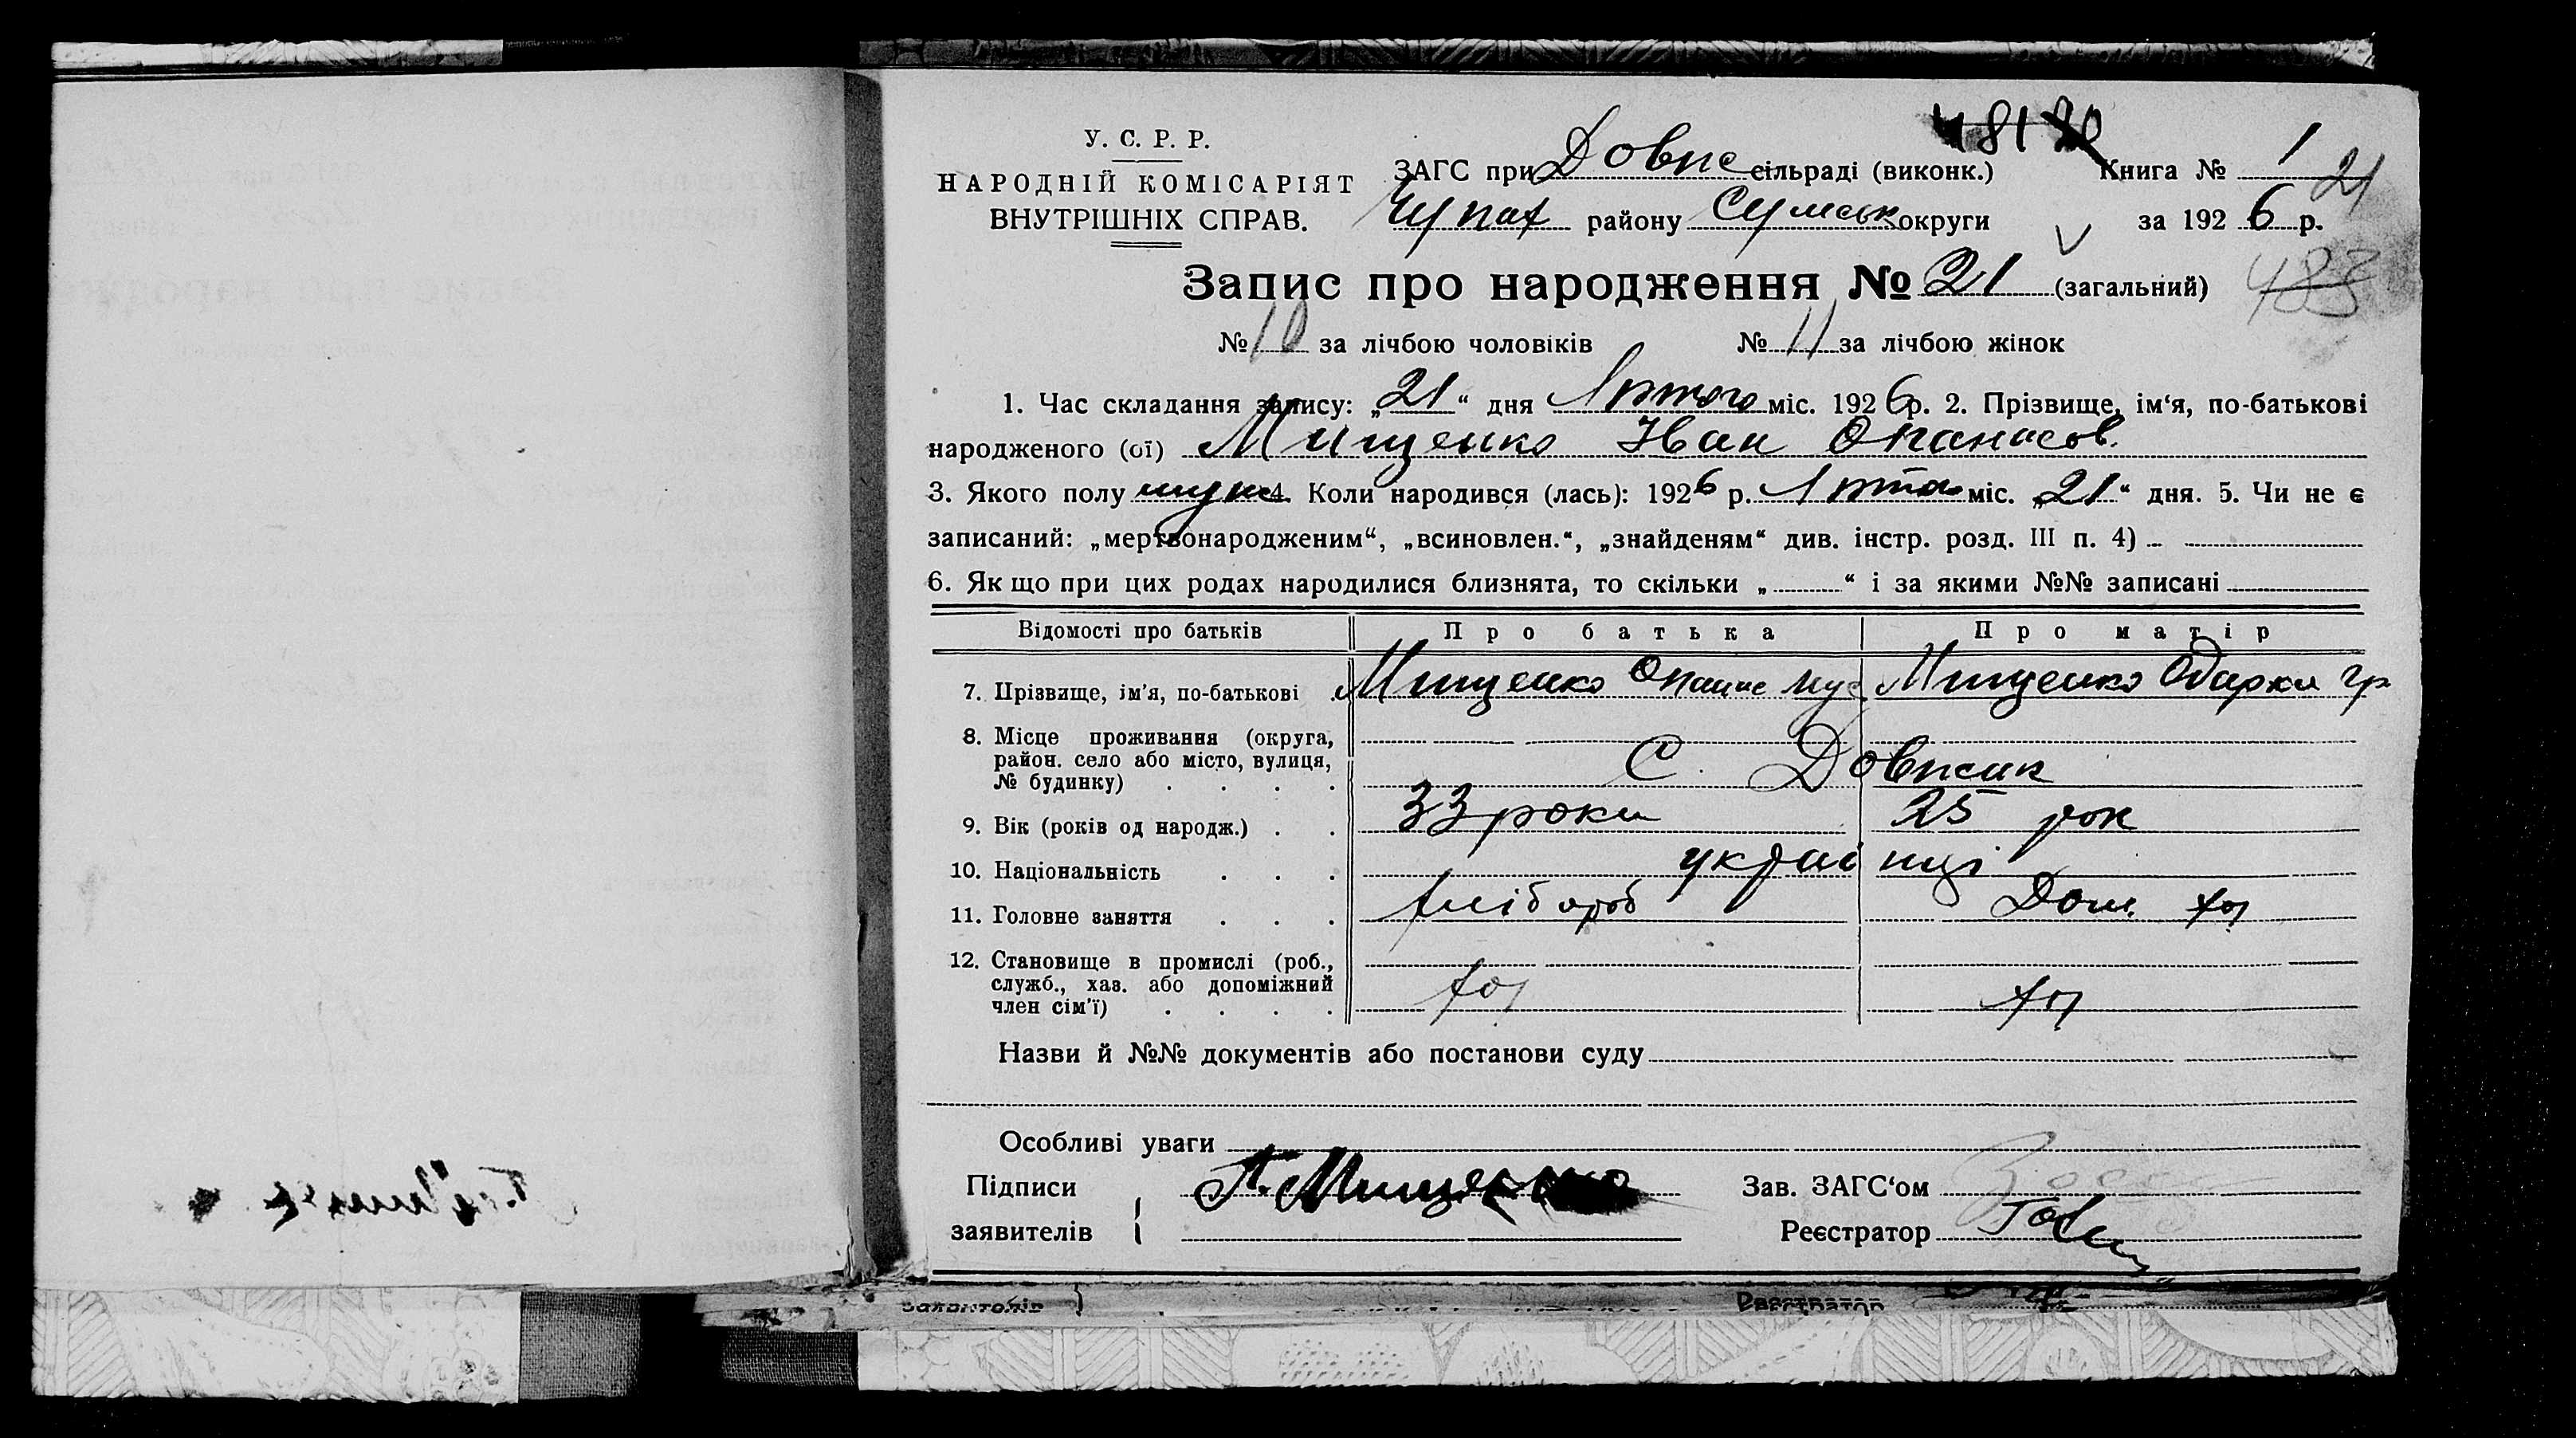 У. С. Р. Р.
НАРОДНІЙ КОМІСАРІЯТ
ВНУТРІШНІХ СПРАВ.
48180
ЗАГС при Довж сільраді (виконк.) Книга № 1
21
Чупах району Сумськ округи за 1926 р.
Запис про народження № 21 (загальний)
483
№ 10 за лічбою чоловіків № 11 за лічбою жінок
1. Час складання запису: „21“ дня Лютого міс. 1926 р. 2. Прізвище, ім‘я, по-батькові
народженого (ої) Мищенко Іван Опанасов.
3. Якого полу муж 4. Коли народився (лась): 1926 р. Люто міс. „21“ дня. 5. Чи не є
записаний: „мертвонародженим“, „всиновлен.“, „знайденям“ див. інстр. розд. III п. 4)
6. Як що при цих родах народилися близнята, то скільки „ “ і за якими №№ записані
Відомості про батьків Про батька Про матір
7. Прізвище, ім’я, по-батькові Мищенко Опанас Мищенко Одарка Гр
8. Місце проживання (округа,
район. село або місто, вулиця,
№ будинку) С. Довжик
9. Вік (років од народж.) 33 роки 25 рок
10. Національність українці
11. Головне заняття хлібороб Дом. хоз
12. Становище в промислі (роб.,
служб., хаз. або допоміжний
член сім’ї) хоз хоз
Назви й №№ документів або постанови суду
Особливі уваги
Підписи А. Мищенко Зав. ЗАГС‘ом
заявителів Реєстратор
заявителів } Реєстратор